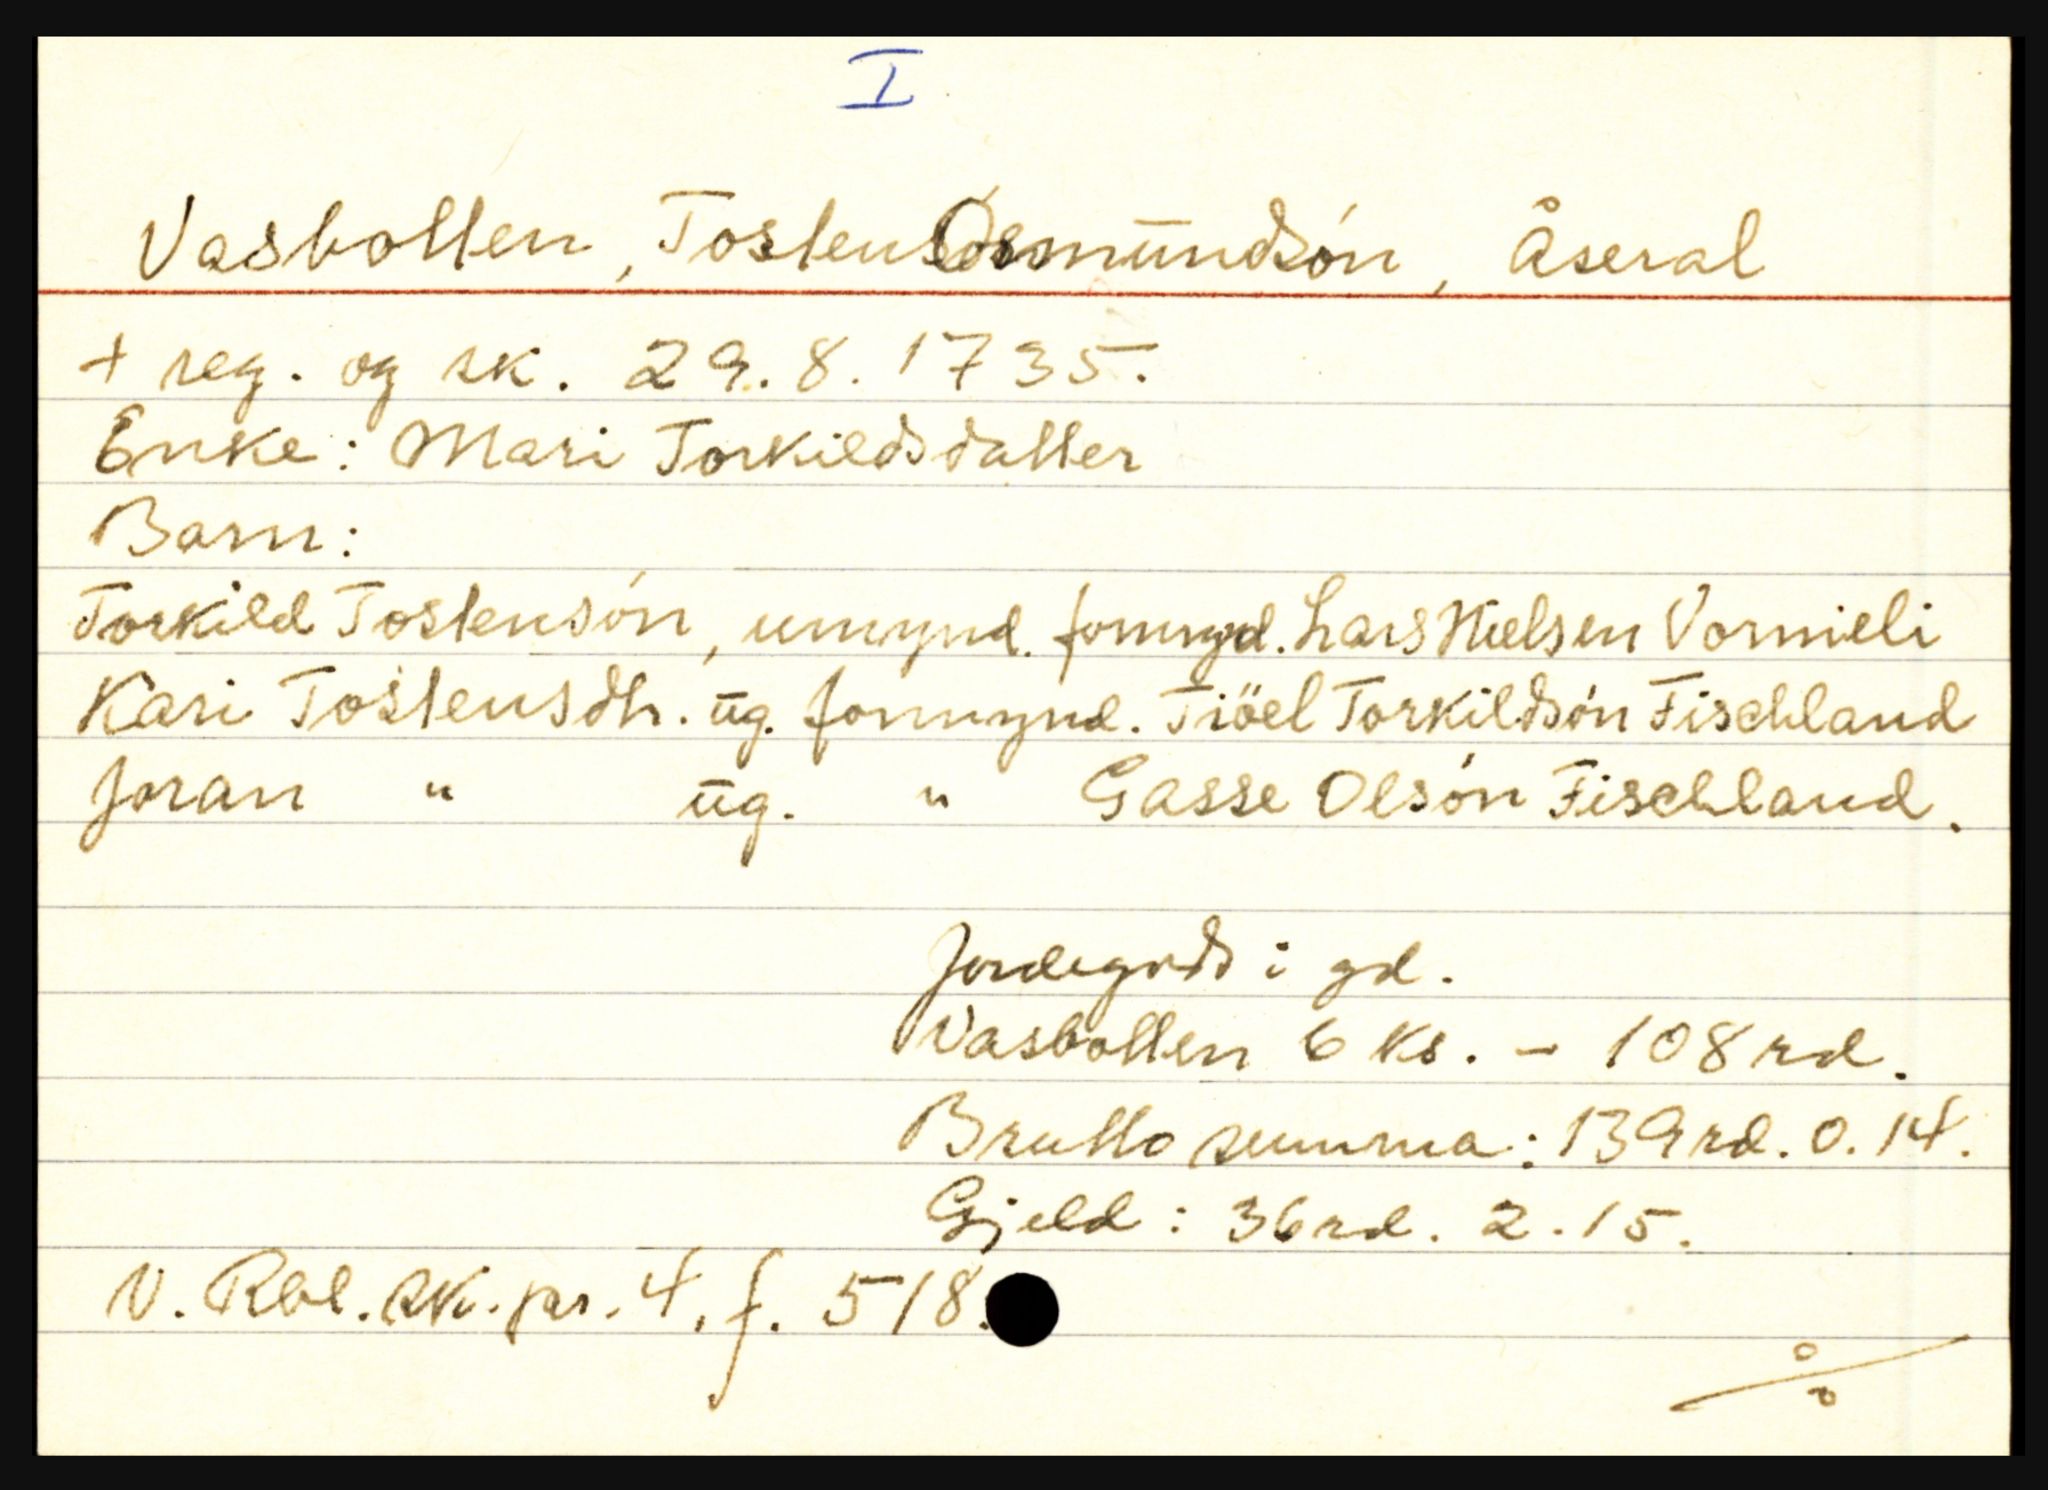 I
Vasbotten, Tosten Osmundsón, Åseral
+ reg. og sk. 29.8.1735.
Enke: Mari Torkildsdatter
Barn:
Torkild Tostensón, umynd. formynd. Lars Nielsen Vornieli
Kari Tostensdtr. ug. formynd. Tiöel Torkildsón Fischland
Joran " ug. " Gasse Olsón Fischland.
Jordegods i gd.
Vasbotten 6 ks. - 108 rd.
Brutto summa: 139 rd. 0. 14.
Gjeld: 36 rd. 2. 15.
V. Rbl. sk. pr. 4, f. 518.